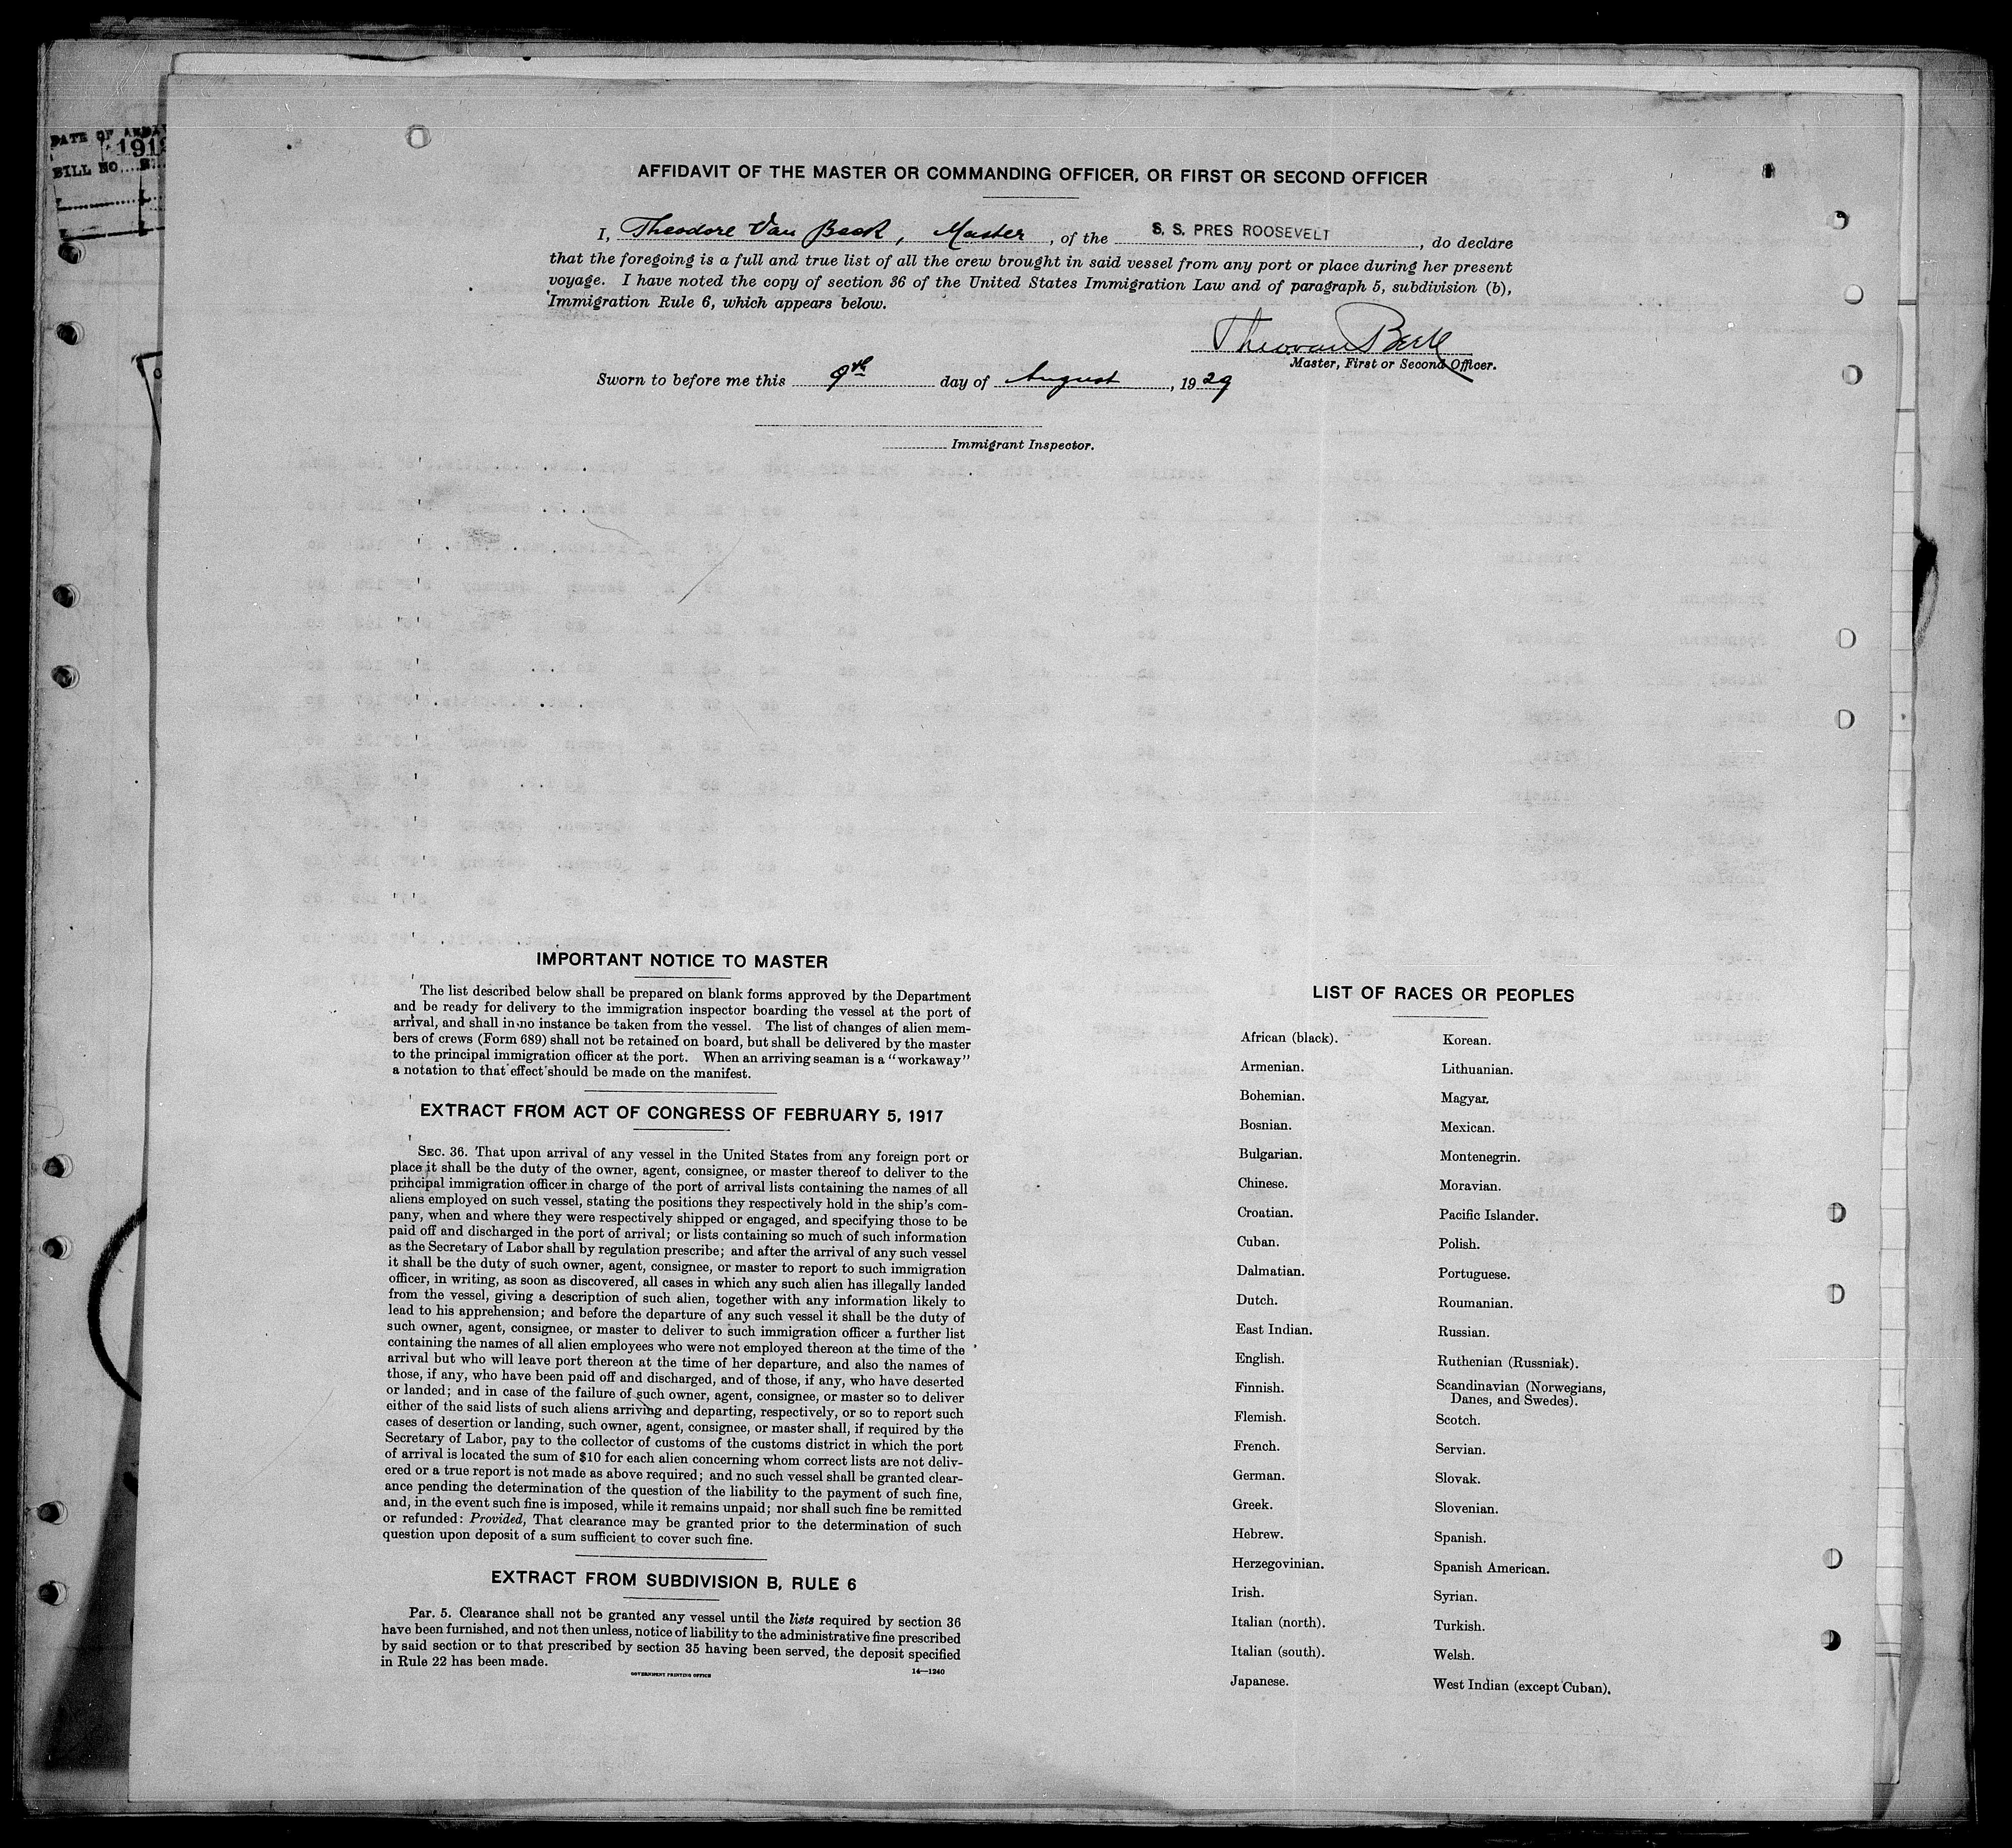 DATE OF
191
BILL NO.
AFFIDAVIT OF THE MASTER OR COMMANDING OFFICER, OR FIRST OR SECOND OFFICER
I, Theodore Van Beek, Master, of the S. S. PRES ROOSEVELT, do declare
that the foregoing is a full and true list of all the crew brought in said vessel from any port or place during her present
voyage. I have noted the copy of section 36 of the United States Immigration Law and of paragraph 5, subdivision (b),
Immigration Rule 6, which appears below.
Theo van Beek
Master, First or Second Officer.
Sworn to before me this 9th day of August, 1929
Immigrant Inspector.
IMPORTANT NOTICE TO MASTER
The list described below shall be prepared on blank forms approved by the Department
and be ready for delivery to the immigration inspector boarding the vessel at the port of
arrival, and shall in no instance be taken from the vessel. The list of changes of alien mem-
bers of crews (Form 689) shall not be retained on board, but shall be delivered by the master
to the principal immigration officer at the port. When an arriving seaman is a "workaway"
a notation to that effect should be made on the manifest.
EXTRACT FROM ACT OF CONGRESS OF FEBRUARY 5, 1917
SEC. 36. That upon arrival of any vessel in the United States from any foreign port or
place it shall be the duty of the owner, agent, consignee, or master thereof to deliver to the
principal immigration officer in charge of the port of arrival lists containing the names of all
aliens employed on such vessel, stating the positions they respectively hold in the ship's com-
pany, when and where they were respectively shipped or engaged, and specifying those to be
paid off and discharged in the port of arrival; or lists containing so much of such information
as the Secretary of Labor shall by regulation prescribe; and after the arrival of any such vessel
it shall be the duty of such owner, agent, consignee, or master to report to such immigration
officer, in writing, as soon as discovered, all cases in which any such alien has illegally landed
from the vessel, giving a description of such alien, together with any information likely to
lead to his apprehension; and before the departure of any such vessel it shall be the duty of
such owner, agent, consignee, or master to deliver to such immigration officer a further list
containing the names of all alien employees who were not employed thereon at the time of the
arrival but who will leave port thereon at the time of her departure, and also the names of
those, if any, who have been paid off and discharged, and of those, if any, who have deserted
or landed; and in case of the failure of such owner, agent, consignee, or master so to deliver
either of the said lists of such aliens arriving and departing, respectively, or so to report such
cases of desertion or landing, such owner, agent, consignee, or master shall, if required by the
Secretary of Labor, pay to the collector of customs of the customs district in which the port
of arrival is located the sum of $10 for each alien concerning whom correct lists are not deliv-
ered or a true report is not made as above required; and no such vessel shall be granted clear-
ance pending the determination of the question of the liability to the payment of such fine,
and, in the event such fine is imposed, while it remains unpaid; nor shall such fine be remitted
or refunded: Provided, That clearance may be granted prior to the determination of such
question upon deposit of a sum sufficient to cover such fine.
EXTRACT FROM SUBDIVISION B, RULE 6
Par. 5. Clearance shall not be granted any vessel until the lists required by section 36
have been furnished, and not then unless, notice of liability to the administrative fine prescribed
by said section or to that prescribed by section 35 having been served, the deposit specified
in Rule 22 has been made.
GOVERNMENT PRINTING OFFICE 14—1240
LIST OF RACES OR PEOPLES
African (black).
Armenian.
Bohemian.
Bosnian.
Bulgarian.
Chinese.
Croatian.
Cuban.
Dalmatian.
Dutch.
East Indian.
English.
Finnish.
Flemish.
French.
German.
Greek.
Hebrew.
Herzegovinian.
Irish.
Italian (north).
Italian (south).
Japanese.
Korean.
Lithuanian.
Magyar.
Mexican.
Montenegrin.
Moravian.
Pacific Islander.
Polish.
Portuguese.
Roumanian.
Russian.
Ruthenian (Russniak).
Scandinavian (Norwegians,
Danes, and Swedes).
Scotch.
Servian.
Slovak.
Slovenian.
Spanish.
Spanish American.
Syrian.
Turkish.
Welsh.
West Indian (except Cuban).